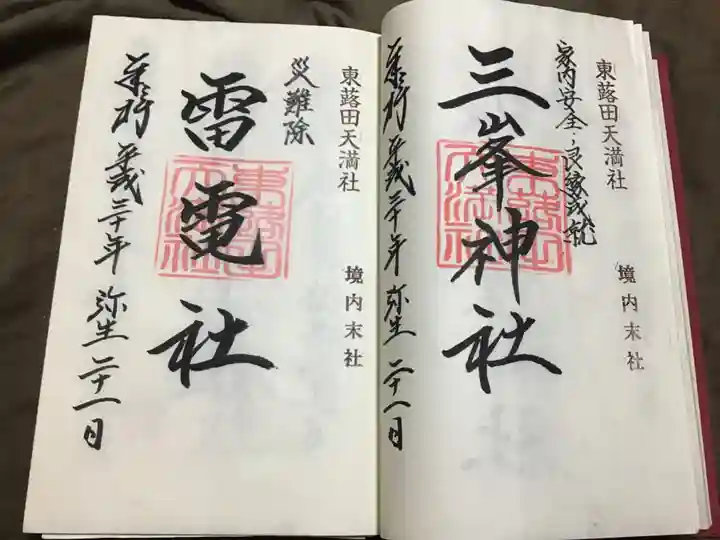 東蕗田天満社 境内末社
家内安全・良縁成就
三峯神社
東蕗田天満社
奉拝 平成三十年 弥生 二十一日
東蕗田天満社 境内末社
災難除
雷電社
東蕗田天満社
奉拝 平成三十年 弥生 二十一日